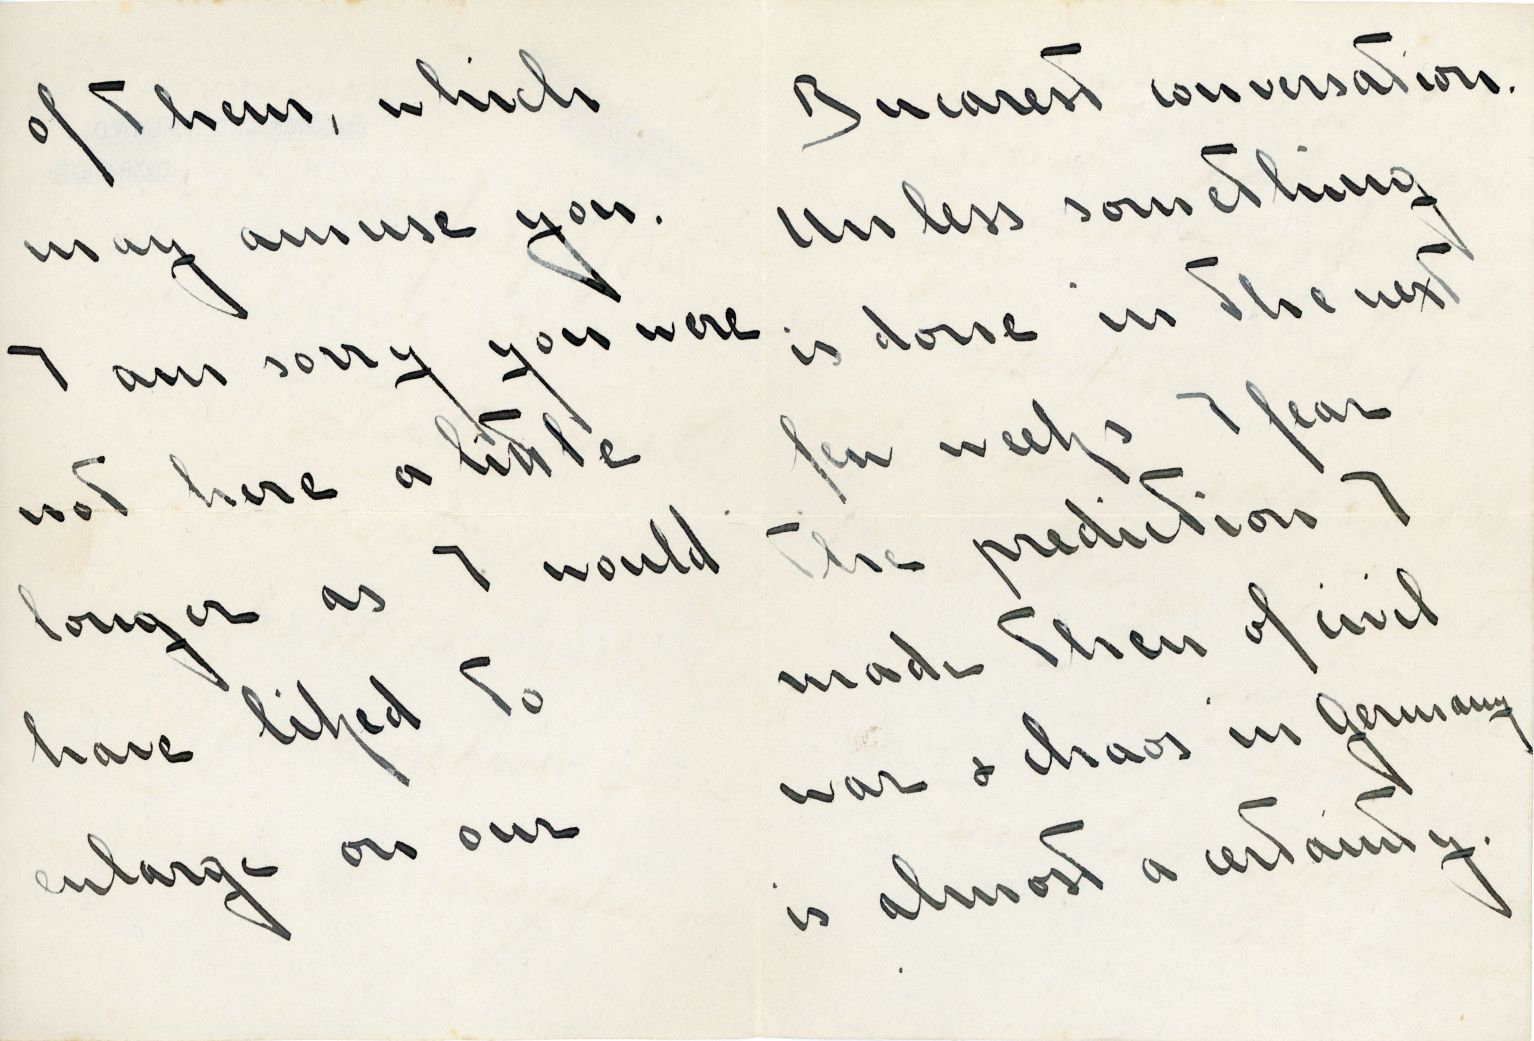 of them, which
may amuse you.
I am sorry you were
not here a little
longer as I would
have liked to
enlarge on our
Bucarest conversation.
Unless something
is done in the next
few weeks I fear
the prediction I
made then of civil
war & chaos in Germany
is almost a certainty.